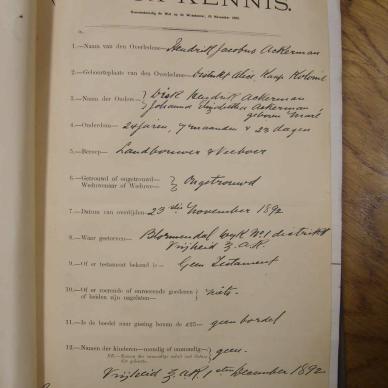 KENNIS.
1.—Naam van den Overledene— Hendrik Jacobus Ackerman
2.—Geboorteplaats van den Overledene— Kaap Kolonie
3.—Namen der Ouders— Dirk Hendrik Ackerman
Johanna Ackerman
geboren
4.—Ouderdom— 24 jaren, 7 maanden & 23 dagen
5.—Beroep— Landbouwer & Veeboer
6.—Getrouwd of ongetrouwd— Ongetrouwd
Weduwnaar of Weduwe—
7.—Datum van overlijden— 23 sten November 1892
8.—Waar gestorven— Bloemendal Wyk No 1 distrikt
Vrijheid Z.A.R.
9.—Of er testament bekend is— Geen Testament
10.—Of er roerende of onroerende goederen niets.
of beiden zijn nagelaten—
11.—Is de boedel naar gissing boven de £25— geen boedel
12.—Namen der kinderen—mondig of onmondig— geen
Vrijheid Z.A.R. 1 sten December 1892